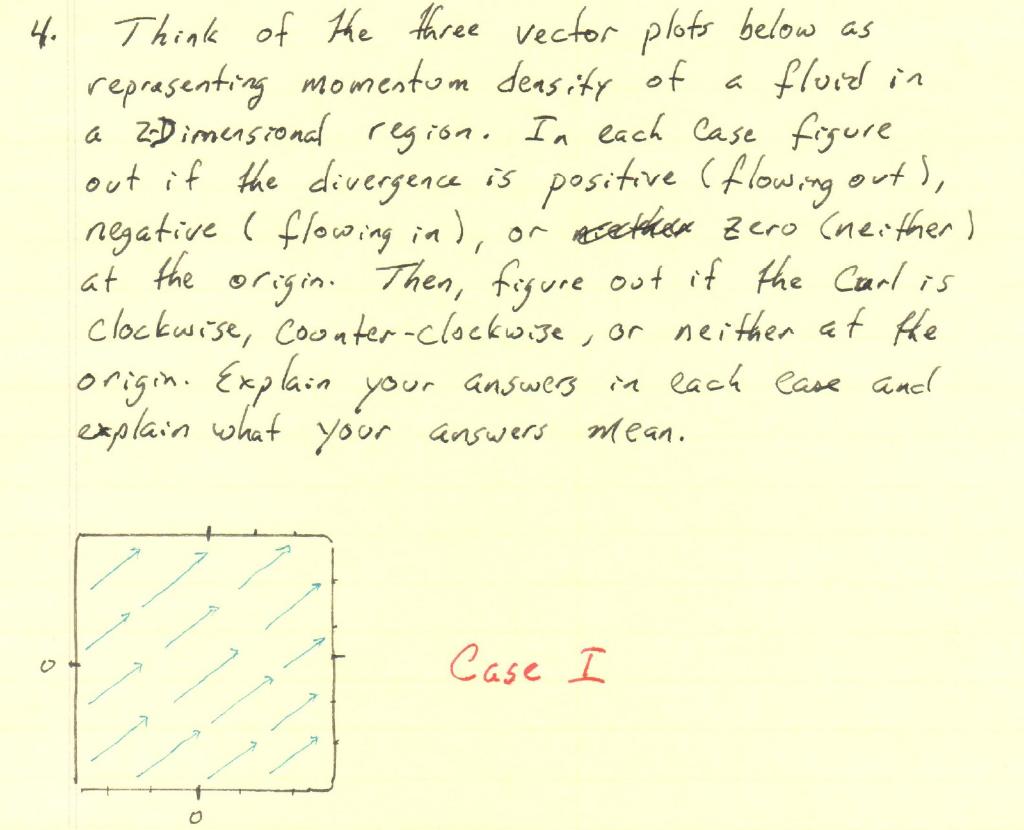 4. Think of the three vector plots below as
representing momentum density of a fluid in
a 2-Dimensional region. In each case figure
out if the divergence is positive (flowing out),
negative (flowing in), or zero (neither)
at the origin. Then, figure out if the Curl is
clockwise, counter-clockwise, or neither at the
origin. Explain your answers in each case and
explain what your answers mean.
0
Case I
0